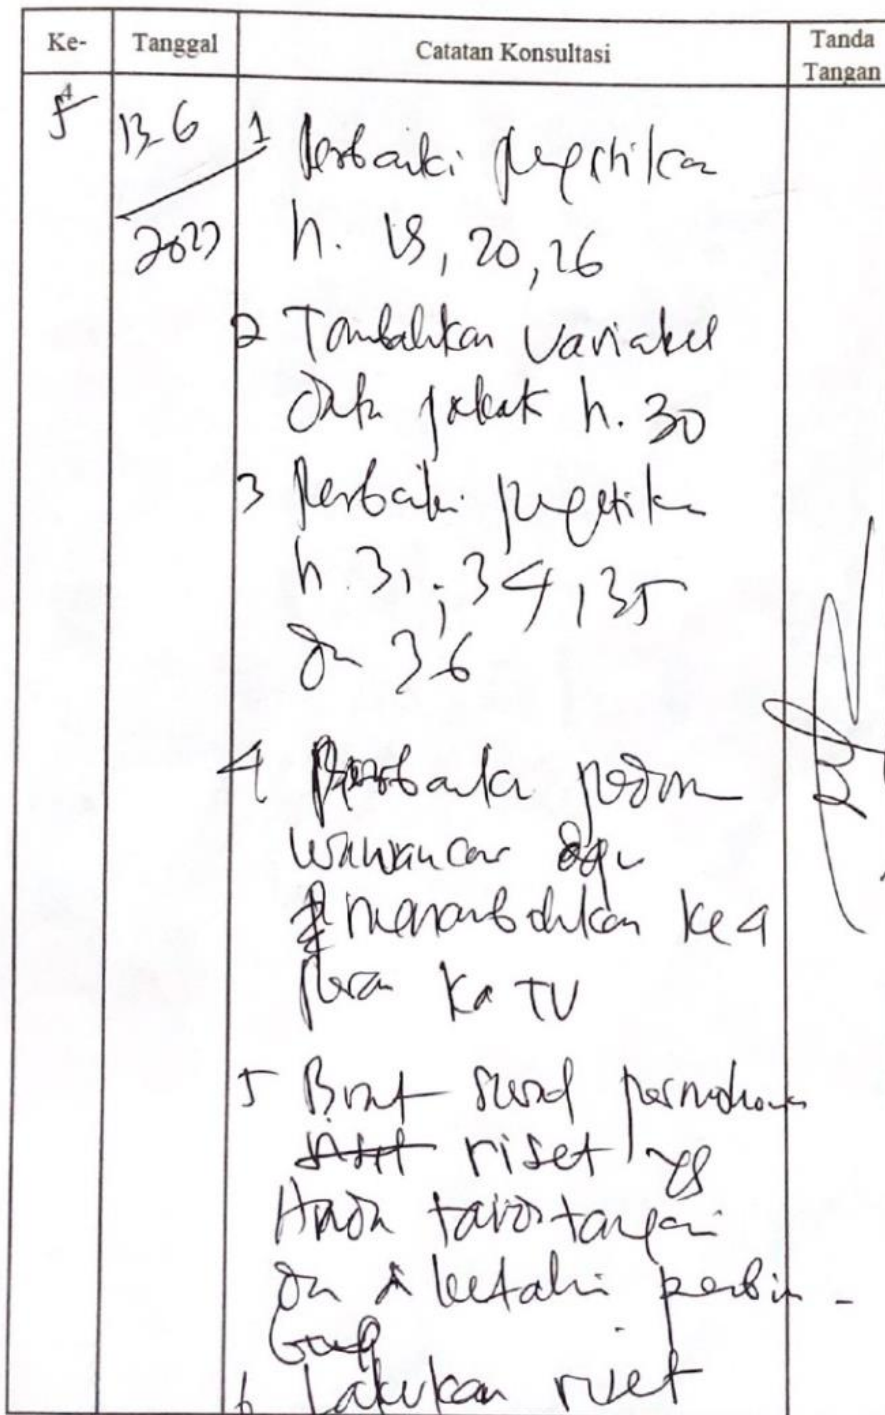 Ke- Tanggal Catatan Konsultasi Tanda Tangan
13-6 1 Perbaiki pengetikan
2023 h. 18, 20, 26
2 Tambahkan Variabel
Data h. 30
3 Perbaiki pengetikan
h. 31, 34, 35
dn 36
4 Perbaiki pedoman
wawancara dgn
menambahkan ke 4
peran Ka TU
5 Buat surat permohonan
riset yg
Anda tandatangani
dn diketahui pembim-
bing
6 Lakukan riset